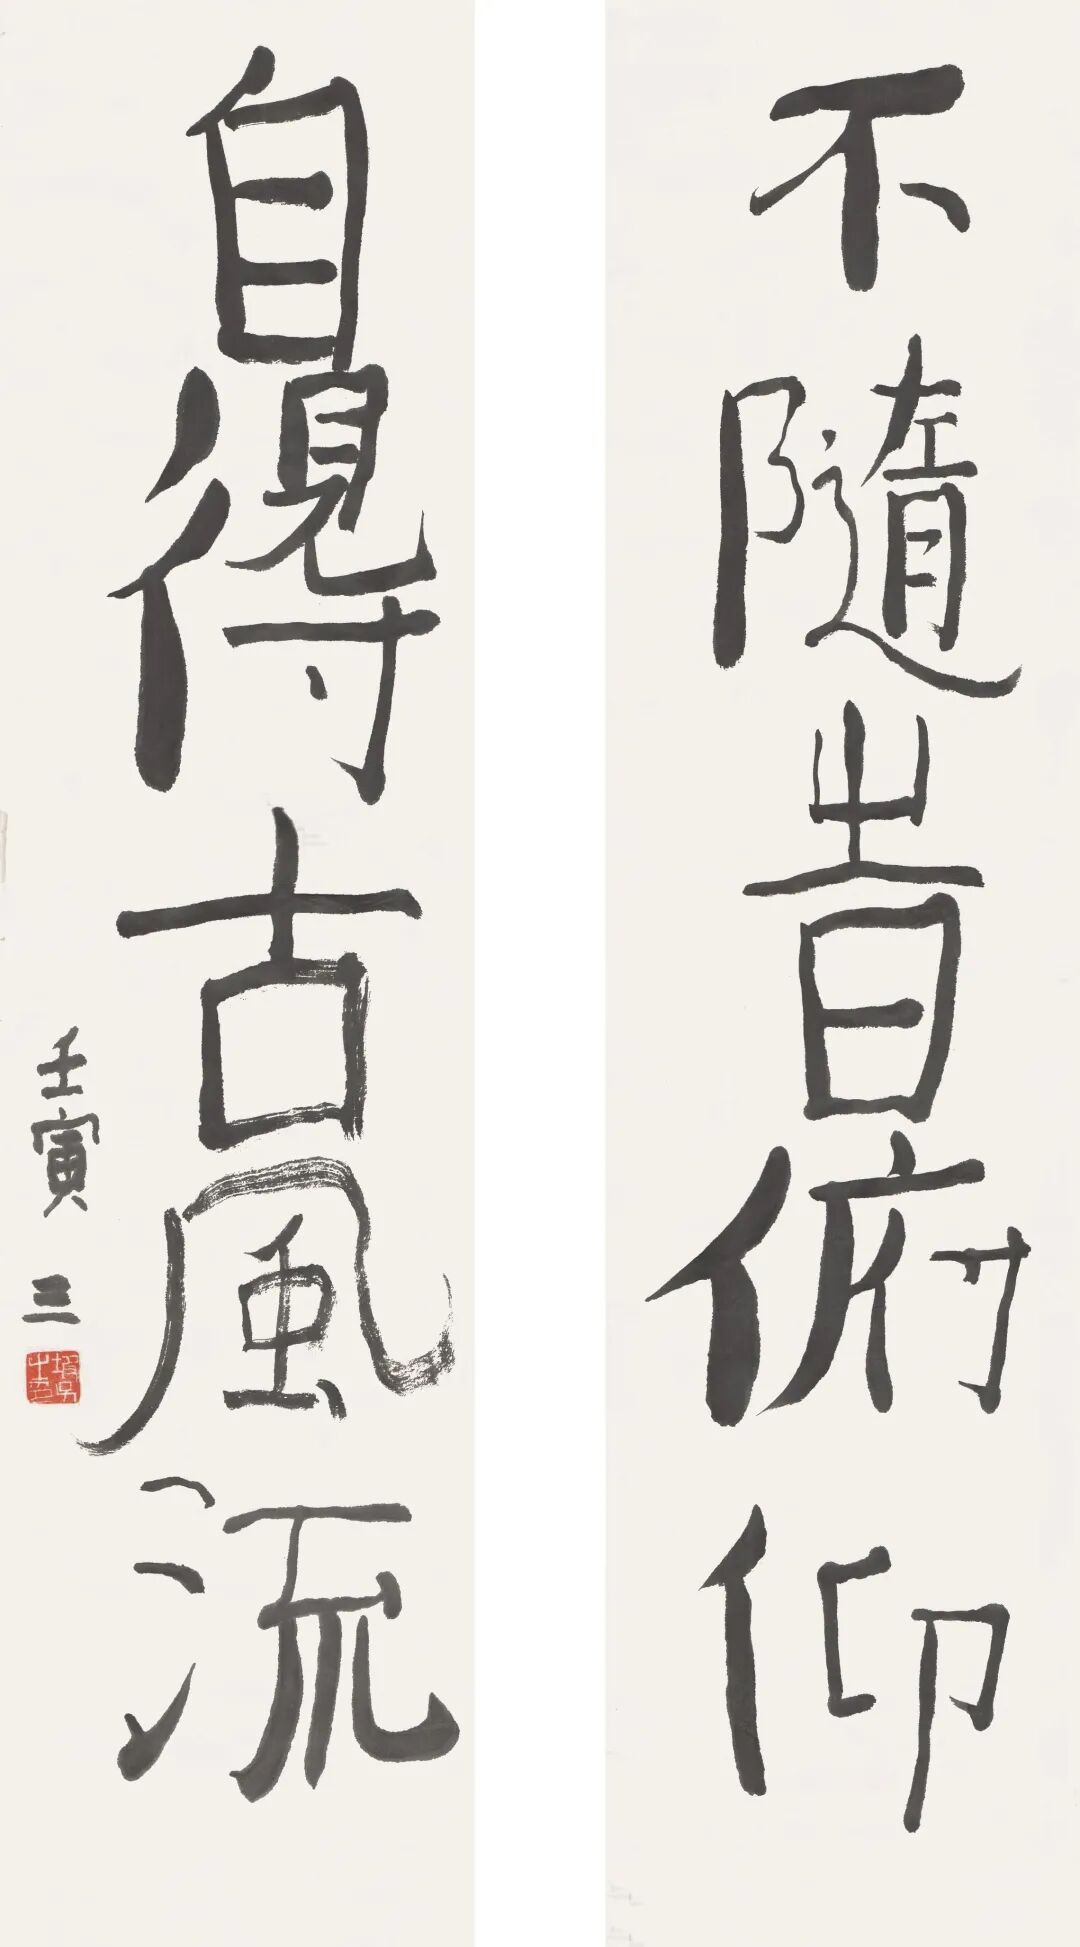 不隨旹俯仰
自得古風流
壬寅 三